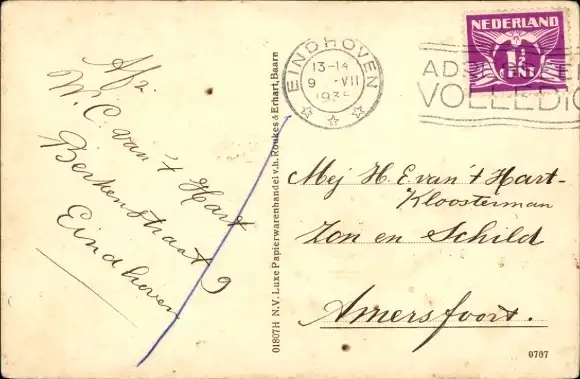 Afz.
W. C. van 't Hart
Berkenstraat 9
Eindhoven
01807H N.V. Luxe Papierwarenhandel v.h. Roukes & Erhart, Baarn
EINDHOVEN
13-14
9 VII
1935
NEDERLAND
1½
CENT
VOLLEDIG
Mej H. E. van 't Hart-
Kloosterman
Zon en Schild
Amersfoort.
0707